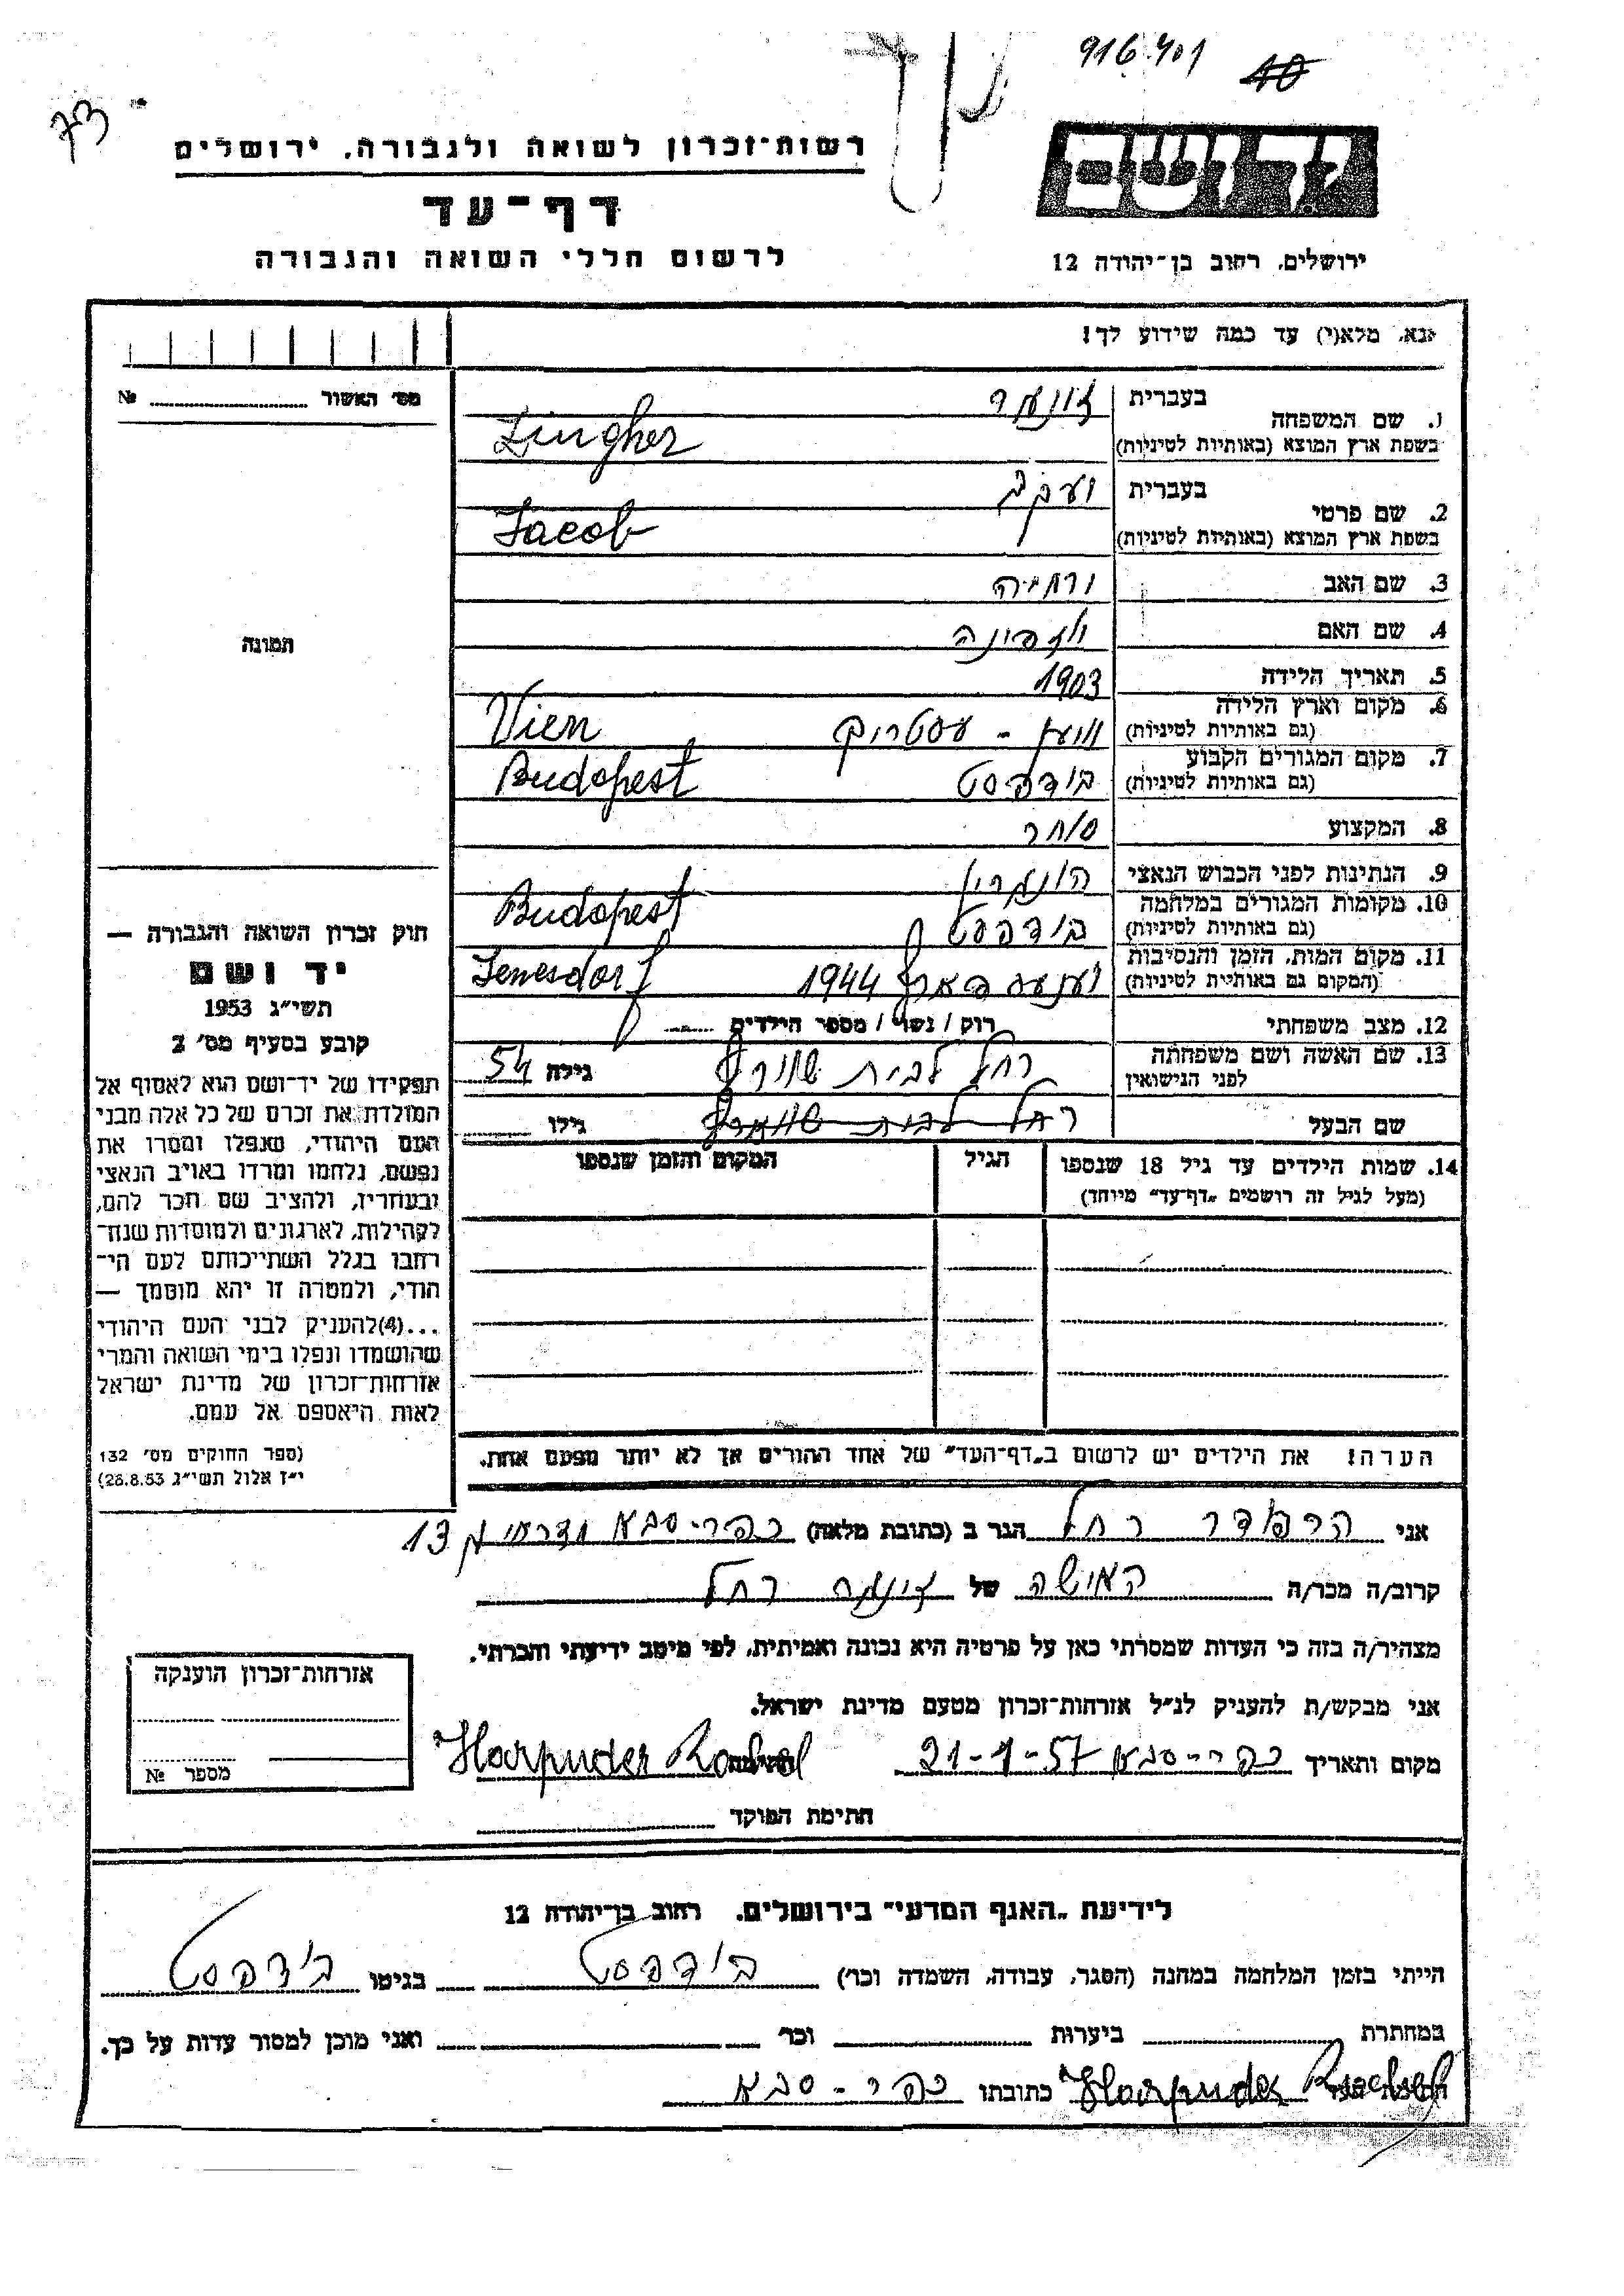 916401
10
73
רשות־זכרון לשואה ולגבורה, ירושלים
דף־עד
לרשום חללי השואה והגבורה
יד ושם
ירושלים, רחוב בן־יהודה 12
נא, מלא(י) עד כמה שידוע לך!
מס׳ האשור № 
1. שם המשפחה
בעברית
בשפת ארץ המוצא (באותיות לטיניות)
Zingher
2. שם פרטי
בעברית יעקב
בשפת ארץ המוצא (באותיות לטיניות)
Jacob
3. שם האב
4. שם האם
5. תאריך הלידה 1903
6. מקום וארץ הלידה
(גם באותיות לטיניות)
Vien
7. מקום המגורים הקבוע
(גם באותיות לטיניות)
בודפסט Budapest
8. המקצוע סוחר
9. הנתינות לפני הכבוש הנאצי
10. מקומות המגורים במלחמה
(גם באותיות לטיניות)
בודפסט Budapest
11. מקום המות, הזמן והנסיבות
(המקום גם באותיות לטיניות)
1944 Jenesdorf
12. מצב משפחתי רוק / נשוי / מספר הילדים
13. שם האשה ושם משפחתה
לפני הנישואין
רחל לבית גילה 54
שם הבעל רחל לבית גילו
14. שמות הילדים עד גיל 18 שנספו
(מעל לגיל זה רושמים „דף־עד״ מיוחד)
הגיל
המקום והזמן שנספו
הערה! את הילדים יש לרשום ב„דף־העד״ של אחד ההורים אך לא יותר מפעם אחת.
תמונה
חוק זכרון השואה והגבורה —
יד ושם
תשי״ג 1953
קובע בסעיף מס׳ 2
תפקידו של יד־ושם הוא לאסוף אל
המולדת את זכרם של כל אלה מבני
העם היהודי, שנפלו ומסרו את
נפשם, נלחמו ומרדו באויב הנאצי
ובעוזריו, ולהציב שם וזכר להם,
לקהילות, לארגונים ולמוסדות שנח־
רבו בגלל השתייכותם לעם הי־
הודי, ולמטרה זו יהא מוסמך —
...(4)להעניק לבני העם היהודי
שהושמדו ונפלו בימי השואה והמרי
אזרחות־זכרון של מדינת ישראל
לאות היאספם אל עמם.
(ספר החוקים מס׳ 132
י״ז אלול תשי״ג 28.8.53)
אני הרפודר רחל הגר ב (כתובת מלאה) כפר-סבא 13
קרוב/ה מכר/ה האישה של רחל
מצהיר/ה בזה כי העדות שמסרתי כאן על פרטיה היא נכונה ואמיתית, לפי מיטב ידיעתי והכרתי.
אני מבקש/ת להעניק לנ״ל אזרחות־זכרון מטעם מדינת ישראל.
מקום ותאריך כפר-סבא 21-1-57 חתימה Harpuder Rachel
חתימת הפוקד
אזרחות־זכרון הוענקה
מספר №
לידיעת „האגף המדעי״ בירושלים, רחוב בן־יהודה 12
הייתי בזמן המלחמה במחנה (הסגר, עבודה, השמדה וכר׳) בודפסט בגיטו בודפסט
במחתרת ביערות וכר׳ ואני מוכן למסור עדות על כך.
Harpuder Rachel כתובתו כפר-סבא